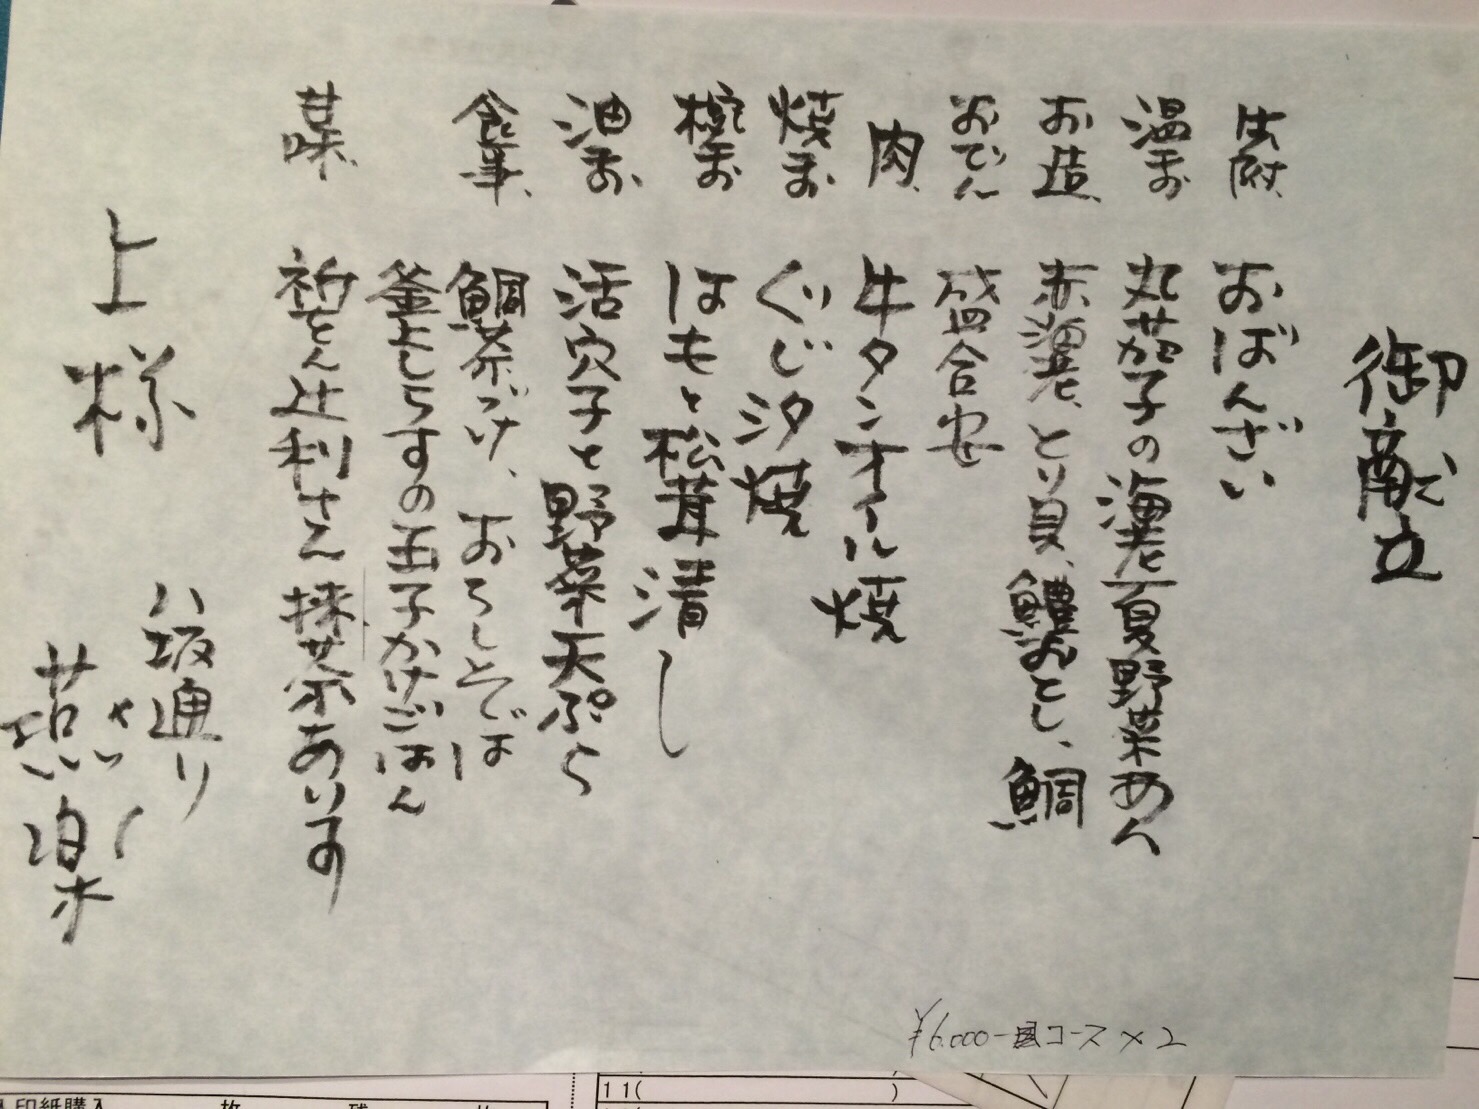 御献立
先附、 おばんざい
温物 丸茄子の海老夏野菜あん
お造、 赤海老、とり貝、鱧おとし、鯛
おでん 盛合せ
肉、 牛タンオイル焼
焼物 ぐじ汐焼
椀物 はもと松茸清し
油物、 活穴子と野菜天ぷら
食事、 鯛茶づけ、おろしそば
釜よしらすの玉子かけごはん
甘味、 祇をん辻利さん抹茶あいす
上様
八坂通り
燕楽
えんらく
¥6.000-コース×2
11( )
印紙購入 枚 残